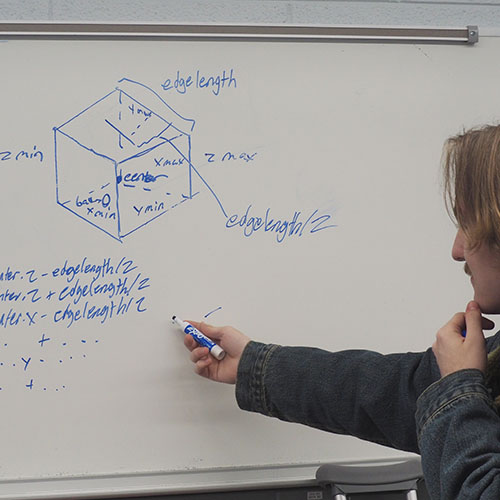 edgelength
y max
z min
x max
z max
center
x min
y min
edgelength/2
nter.z - edgelength/2
nter.z + edgelength/2
nter.x - edgelength/2
.. + ... ...
.. y - ... ..
.. + ...
EXPO